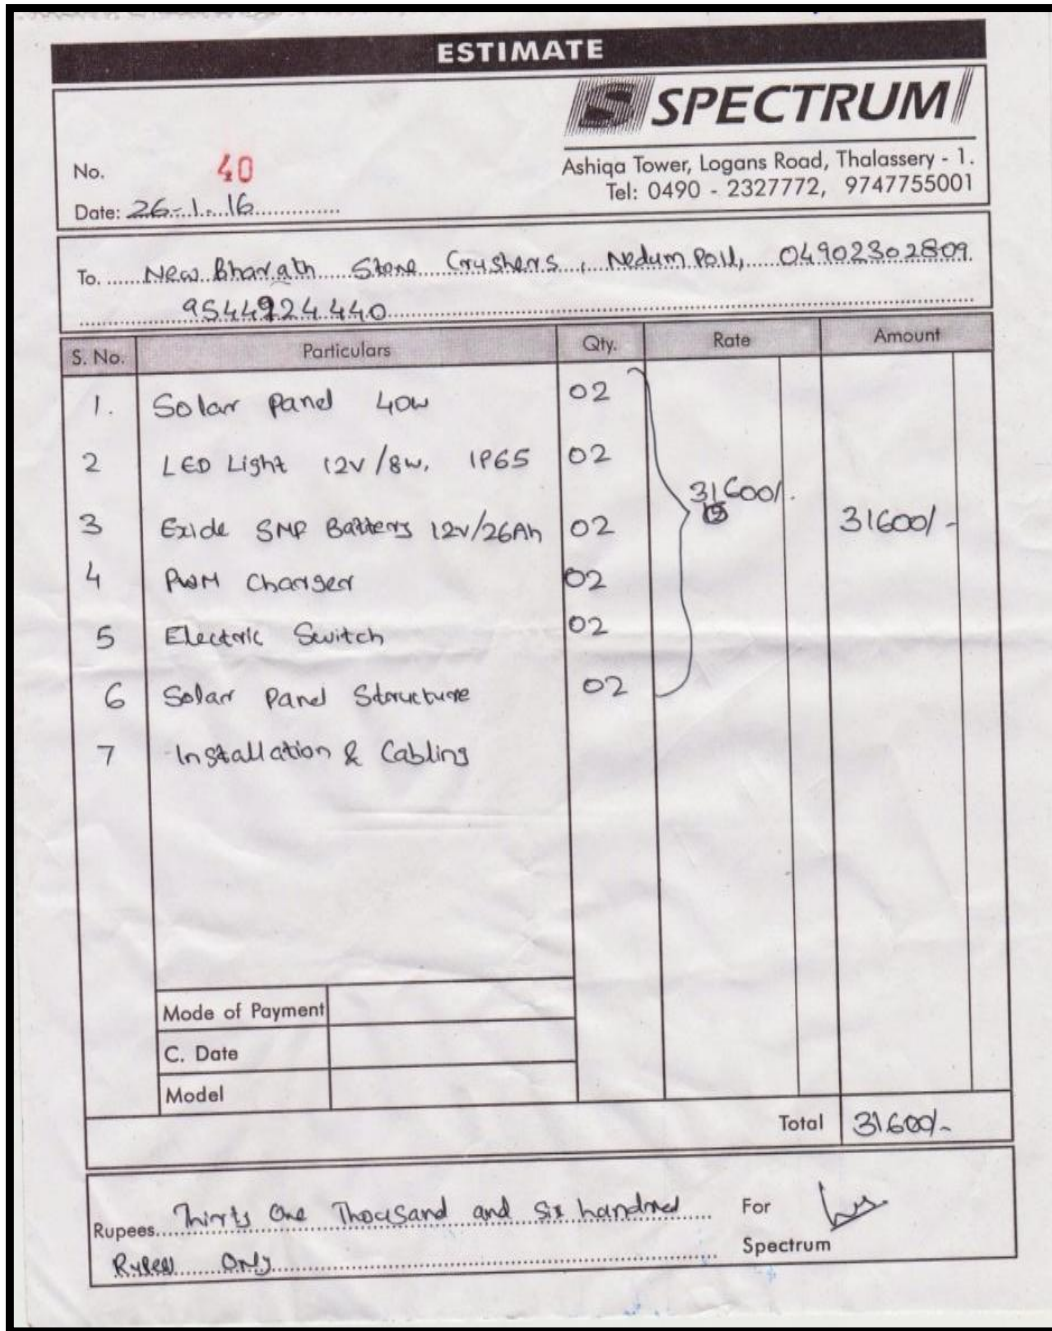 ESTIMATE
SPECTRUM
Ashiqa Tower, Logans Road, Thalassery - 1.
Tel: 0490 - 2327772, 9747755001
No. 40
Date: 26-1-16
To. New Bharath Stone Crushers, Nedumpoll, 04902302809
9544924440
S. No. Particulars Qty. Rate Amount
1. Solar Panel 40w 02
2 LED Light 12v/8w, IP65 02
31600/-
3 Exide SMF Battery 12v/26Ah 02 31600/-
4 PWM Charger 02
5 Electric Switch 02
6 Solar Panel Structure 02
7 Installation & Cabling
Mode of Payment
C. Date
Model
Total 31600/-
Rupees Thirty One Thousand and Six hundred
Rupees Only
For
Spectrum